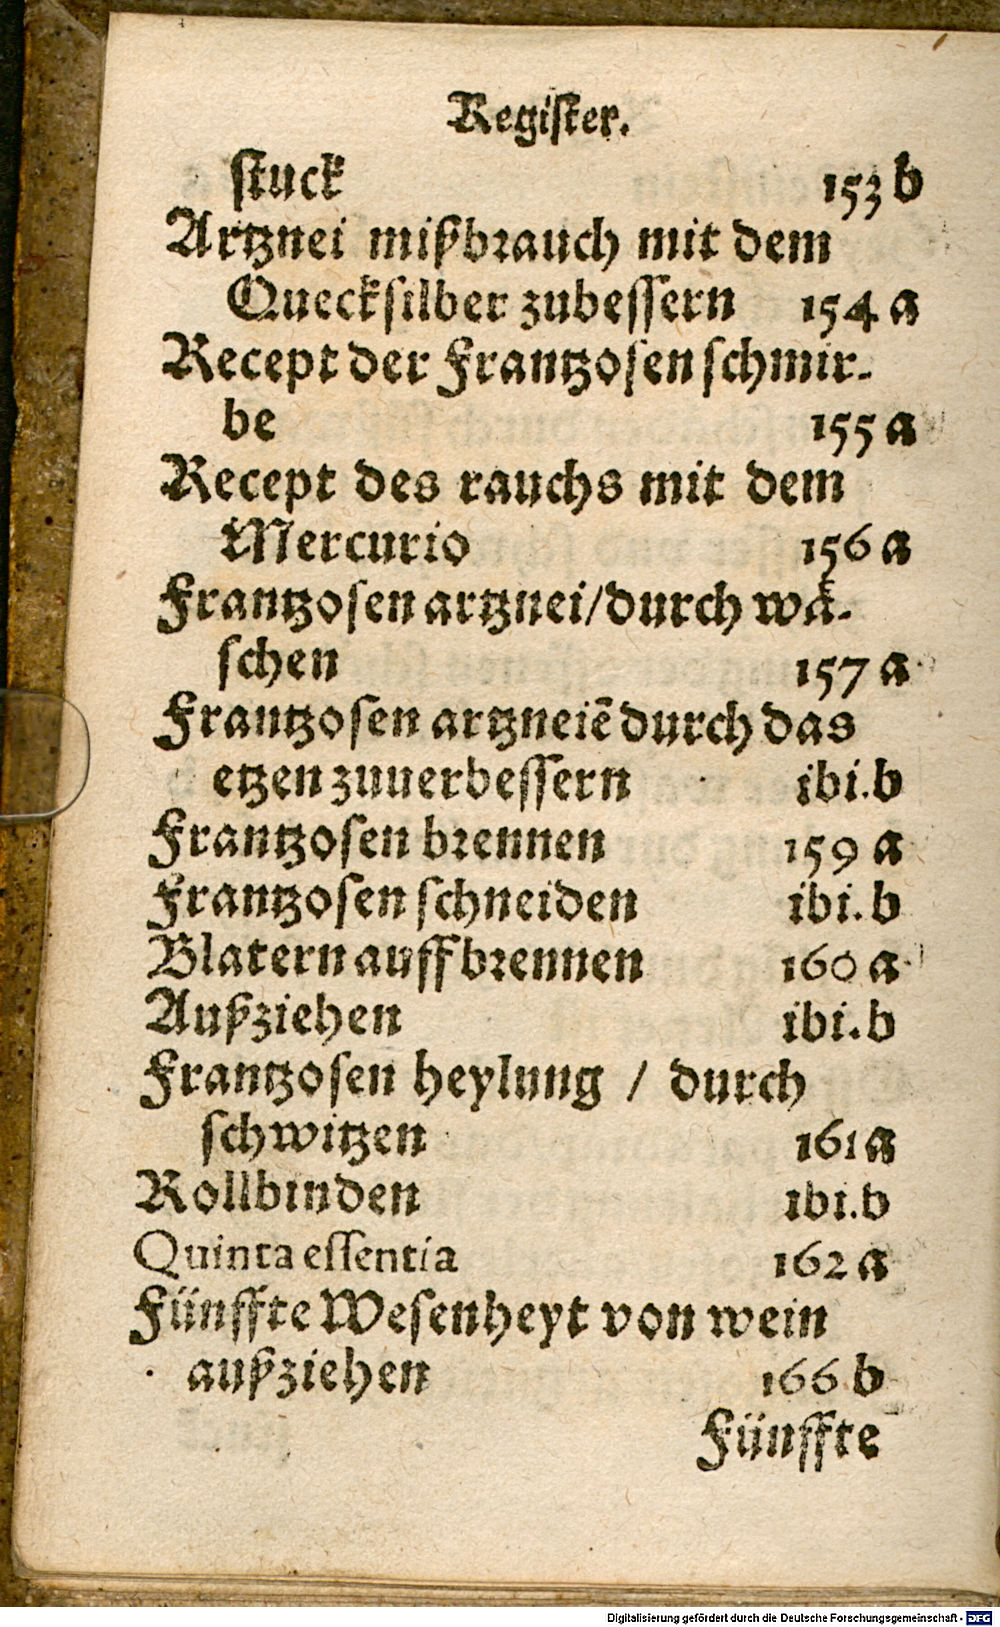 Register.
ſtuck 153 b
Artznei mißbrauch mit dem
Queckſilber zubeſſern 154 a
Recept der Frantzoſen ſchmir-
be 155 a
Recept des rauchs mit dem
Mercurio 156 a
Frantzoſen artznei/durch wä-
ſchen 157 a
Frantzoſen artzneiē durch das
etzen zuuerbeſſern ibi.b
Frantzoſen brennen 159 a
Frantzoſen ſchneiden ibi.b
Blatern auffbrennen 160 a
Außziehen ibi.b
Frantzoſen heylung / durch
ſchwitzen 161 a
Rollbinden ibi.b
Quinta eſſentia 162 a
Fünffte Weſenheyt von wein
außziehen 166 b
Fünffte
Digitalisierung gefördert durch die Deutsche Forschungsgemeinschaft - DFG